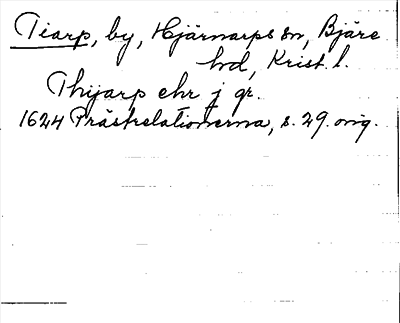 Tiarp, by, Hjärnarps sn, Bjäre
hd, Krist. l.
Thijarp ehr j gr.
1624 Prästrelationerna, s. 29. orig.